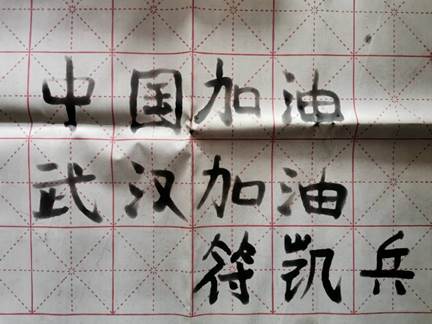 中国加油
武汉加油
符凯兵